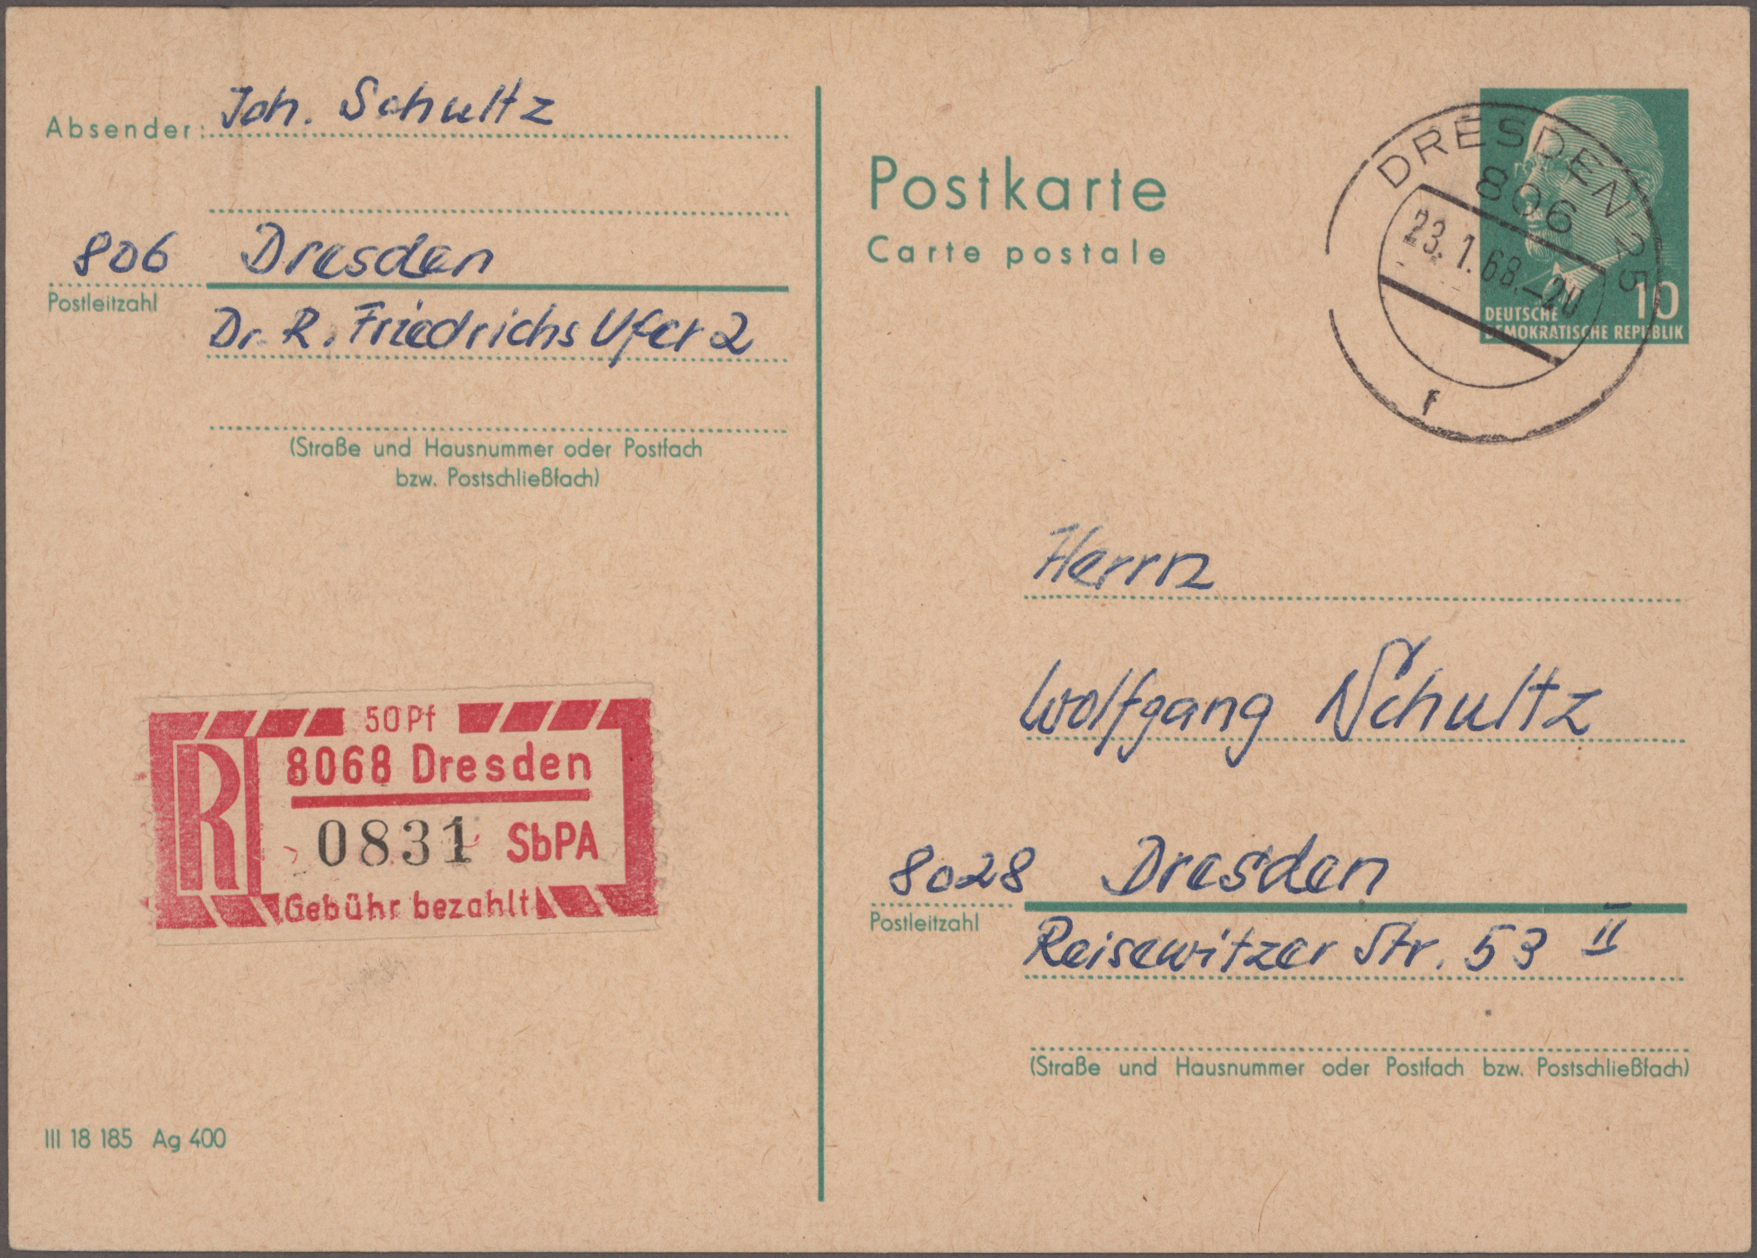 Absender: Joh. Schultz
806 Dresden
Postleitzahl
Dr. R. Friedrichs Ufer 2
(Straße und Hausnummer oder Postfach
bzw. Postschließfach)
50 Pf
R 8068 Dresden
0831 SbPA
Gebühr bezahlt
III 18 185 Ag 400
Postkarte
Carte postale
DRESDEN 25
806
23.1.68.-20
f
10
DEUTSCHE
DEMOKRATISCHE REPUBLIK
Herrn
Wolfgang Schultz
8028 Dresden
Postleitzahl
Reisewitzer Str. 53 II
(Straße und Hausnummer oder Postfach bzw. Postschließfach)